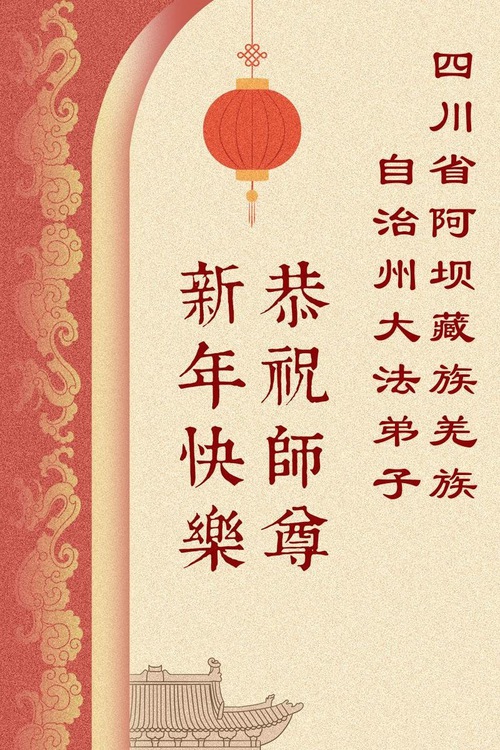 四川省阿坝藏族羌族
自治州大法弟子
恭祝師尊
新年快樂